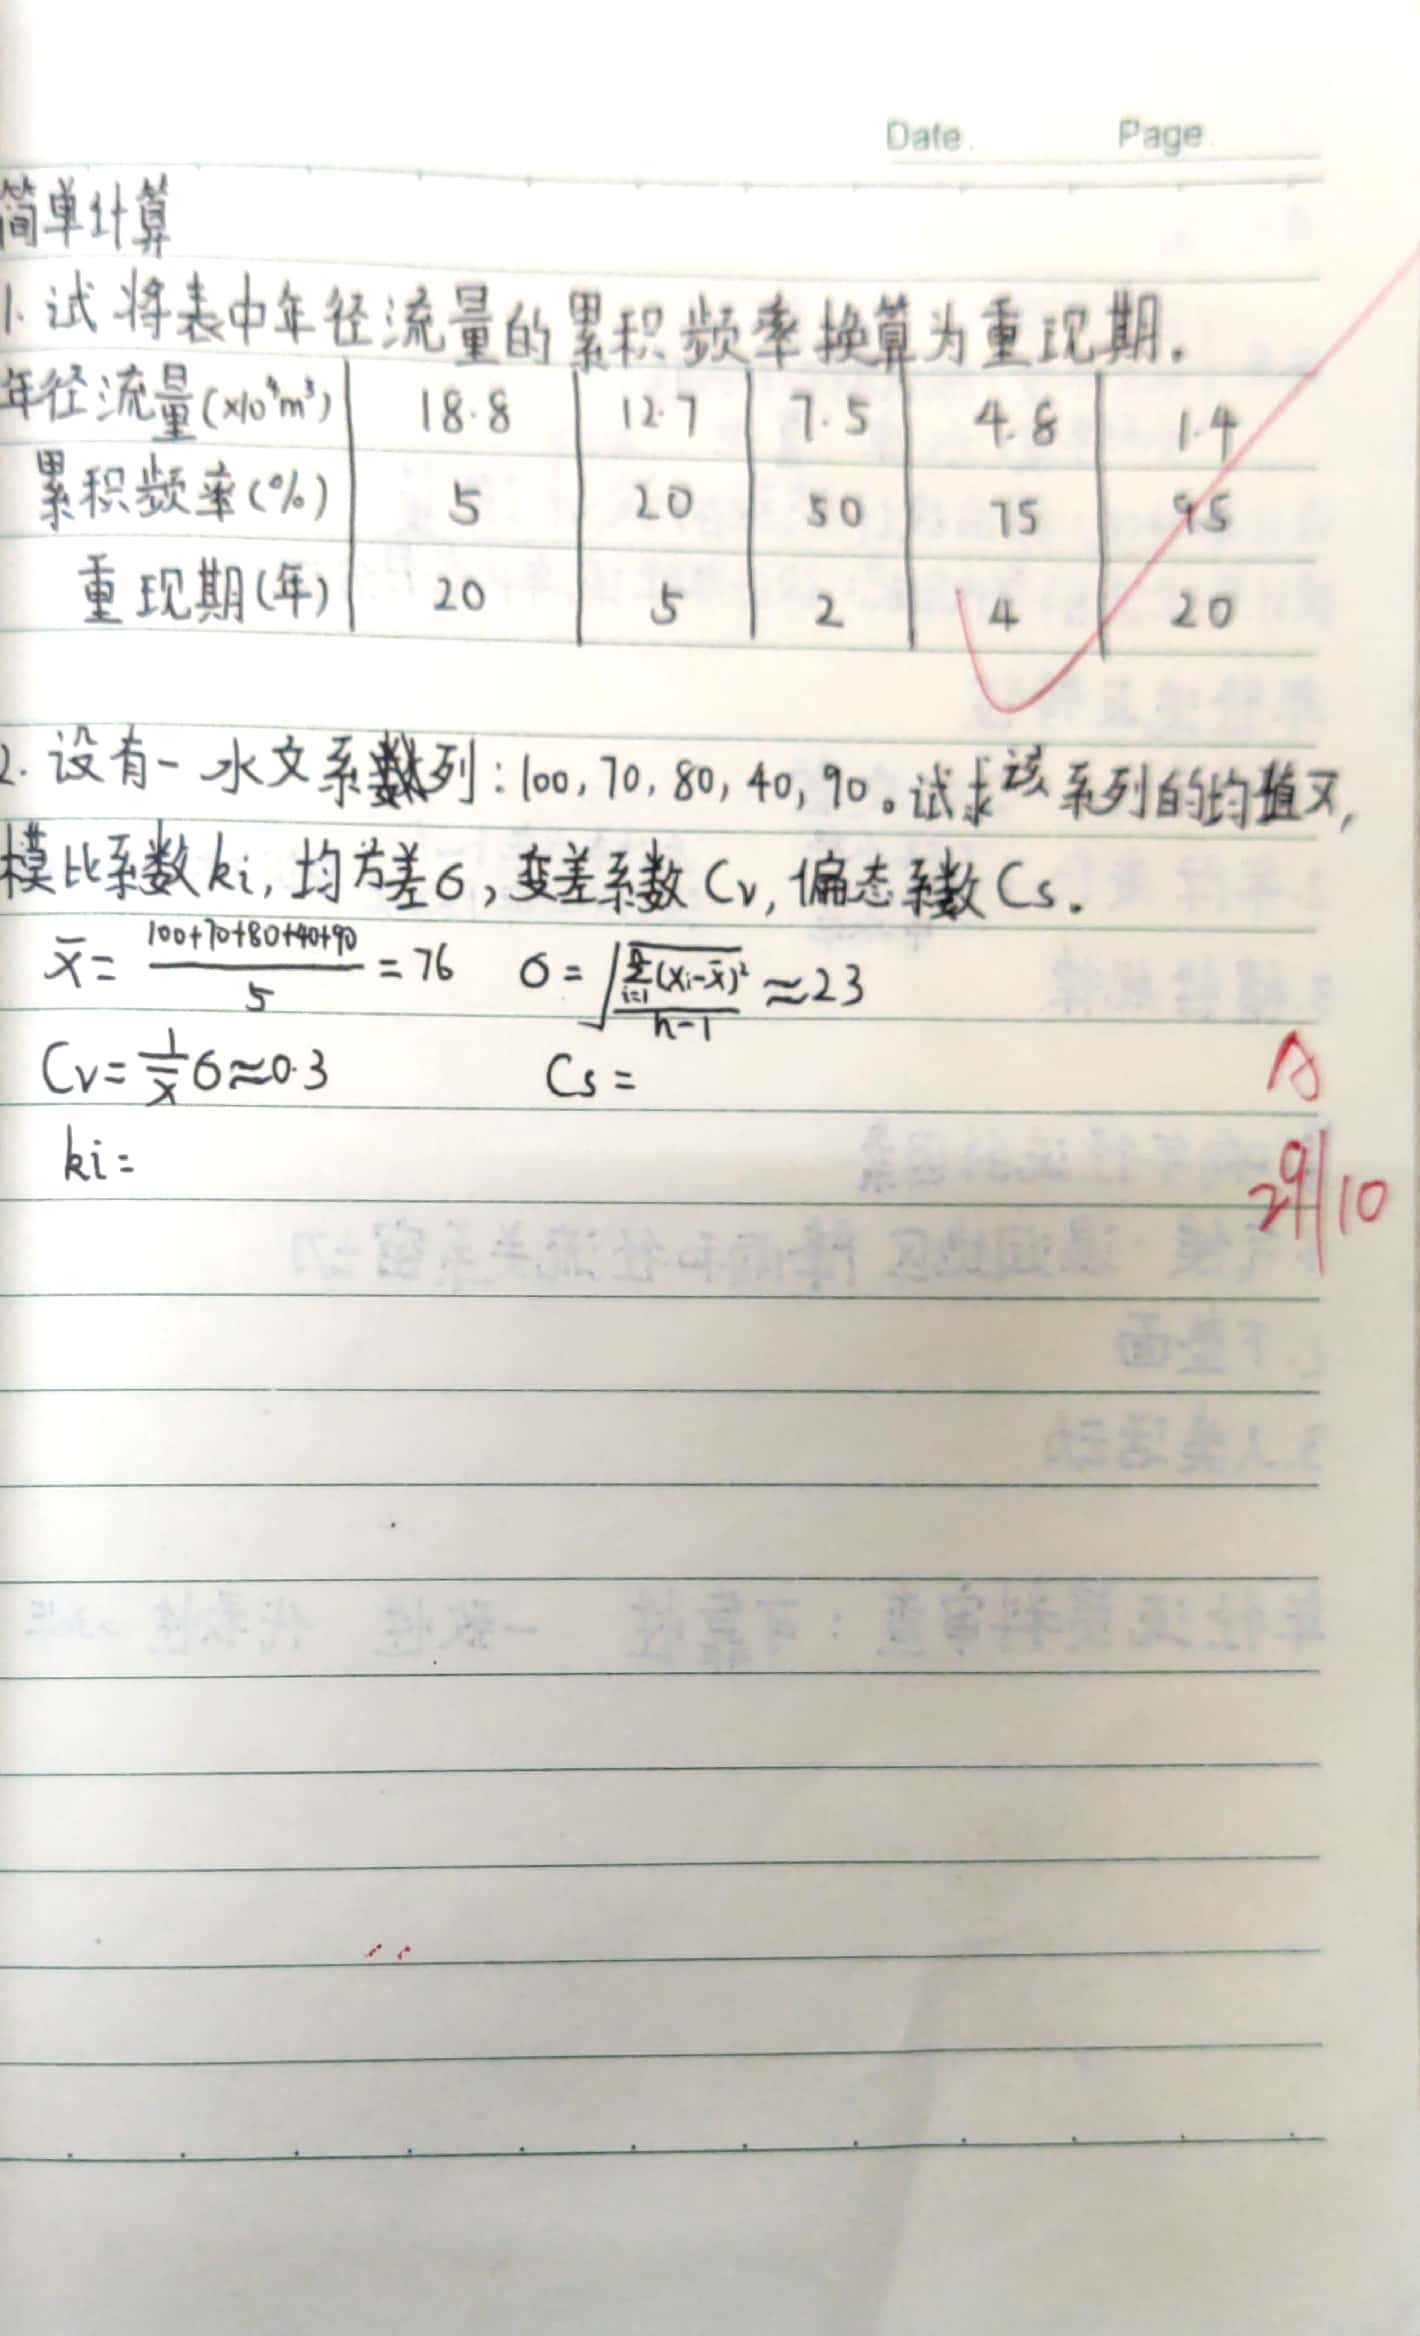 Date. Page.
简单计算
1. 试将表中年径流量的累积频率换算为重现期.
年径流量(×10⁴m³) 18.8 12.7 7.5 4.8 1.4
累积频率(%) 5 20 50 75 95
重现期(年) 20 5 2 4 20
2. 设有一水文系数列:100,70,80,40,90。试求该系列的均值x̄,
模比系数ki,均方差σ,变差系数Cv,偏态系数Cs.
x̄= (100+70+80+40+90)/5 =76 σ=√(Σ(i=1→n)(xi-x̄)²/(n-1)) ≈23
Cv= 1/x̄ σ≈0.3 Cs=
ki=
A
29/10